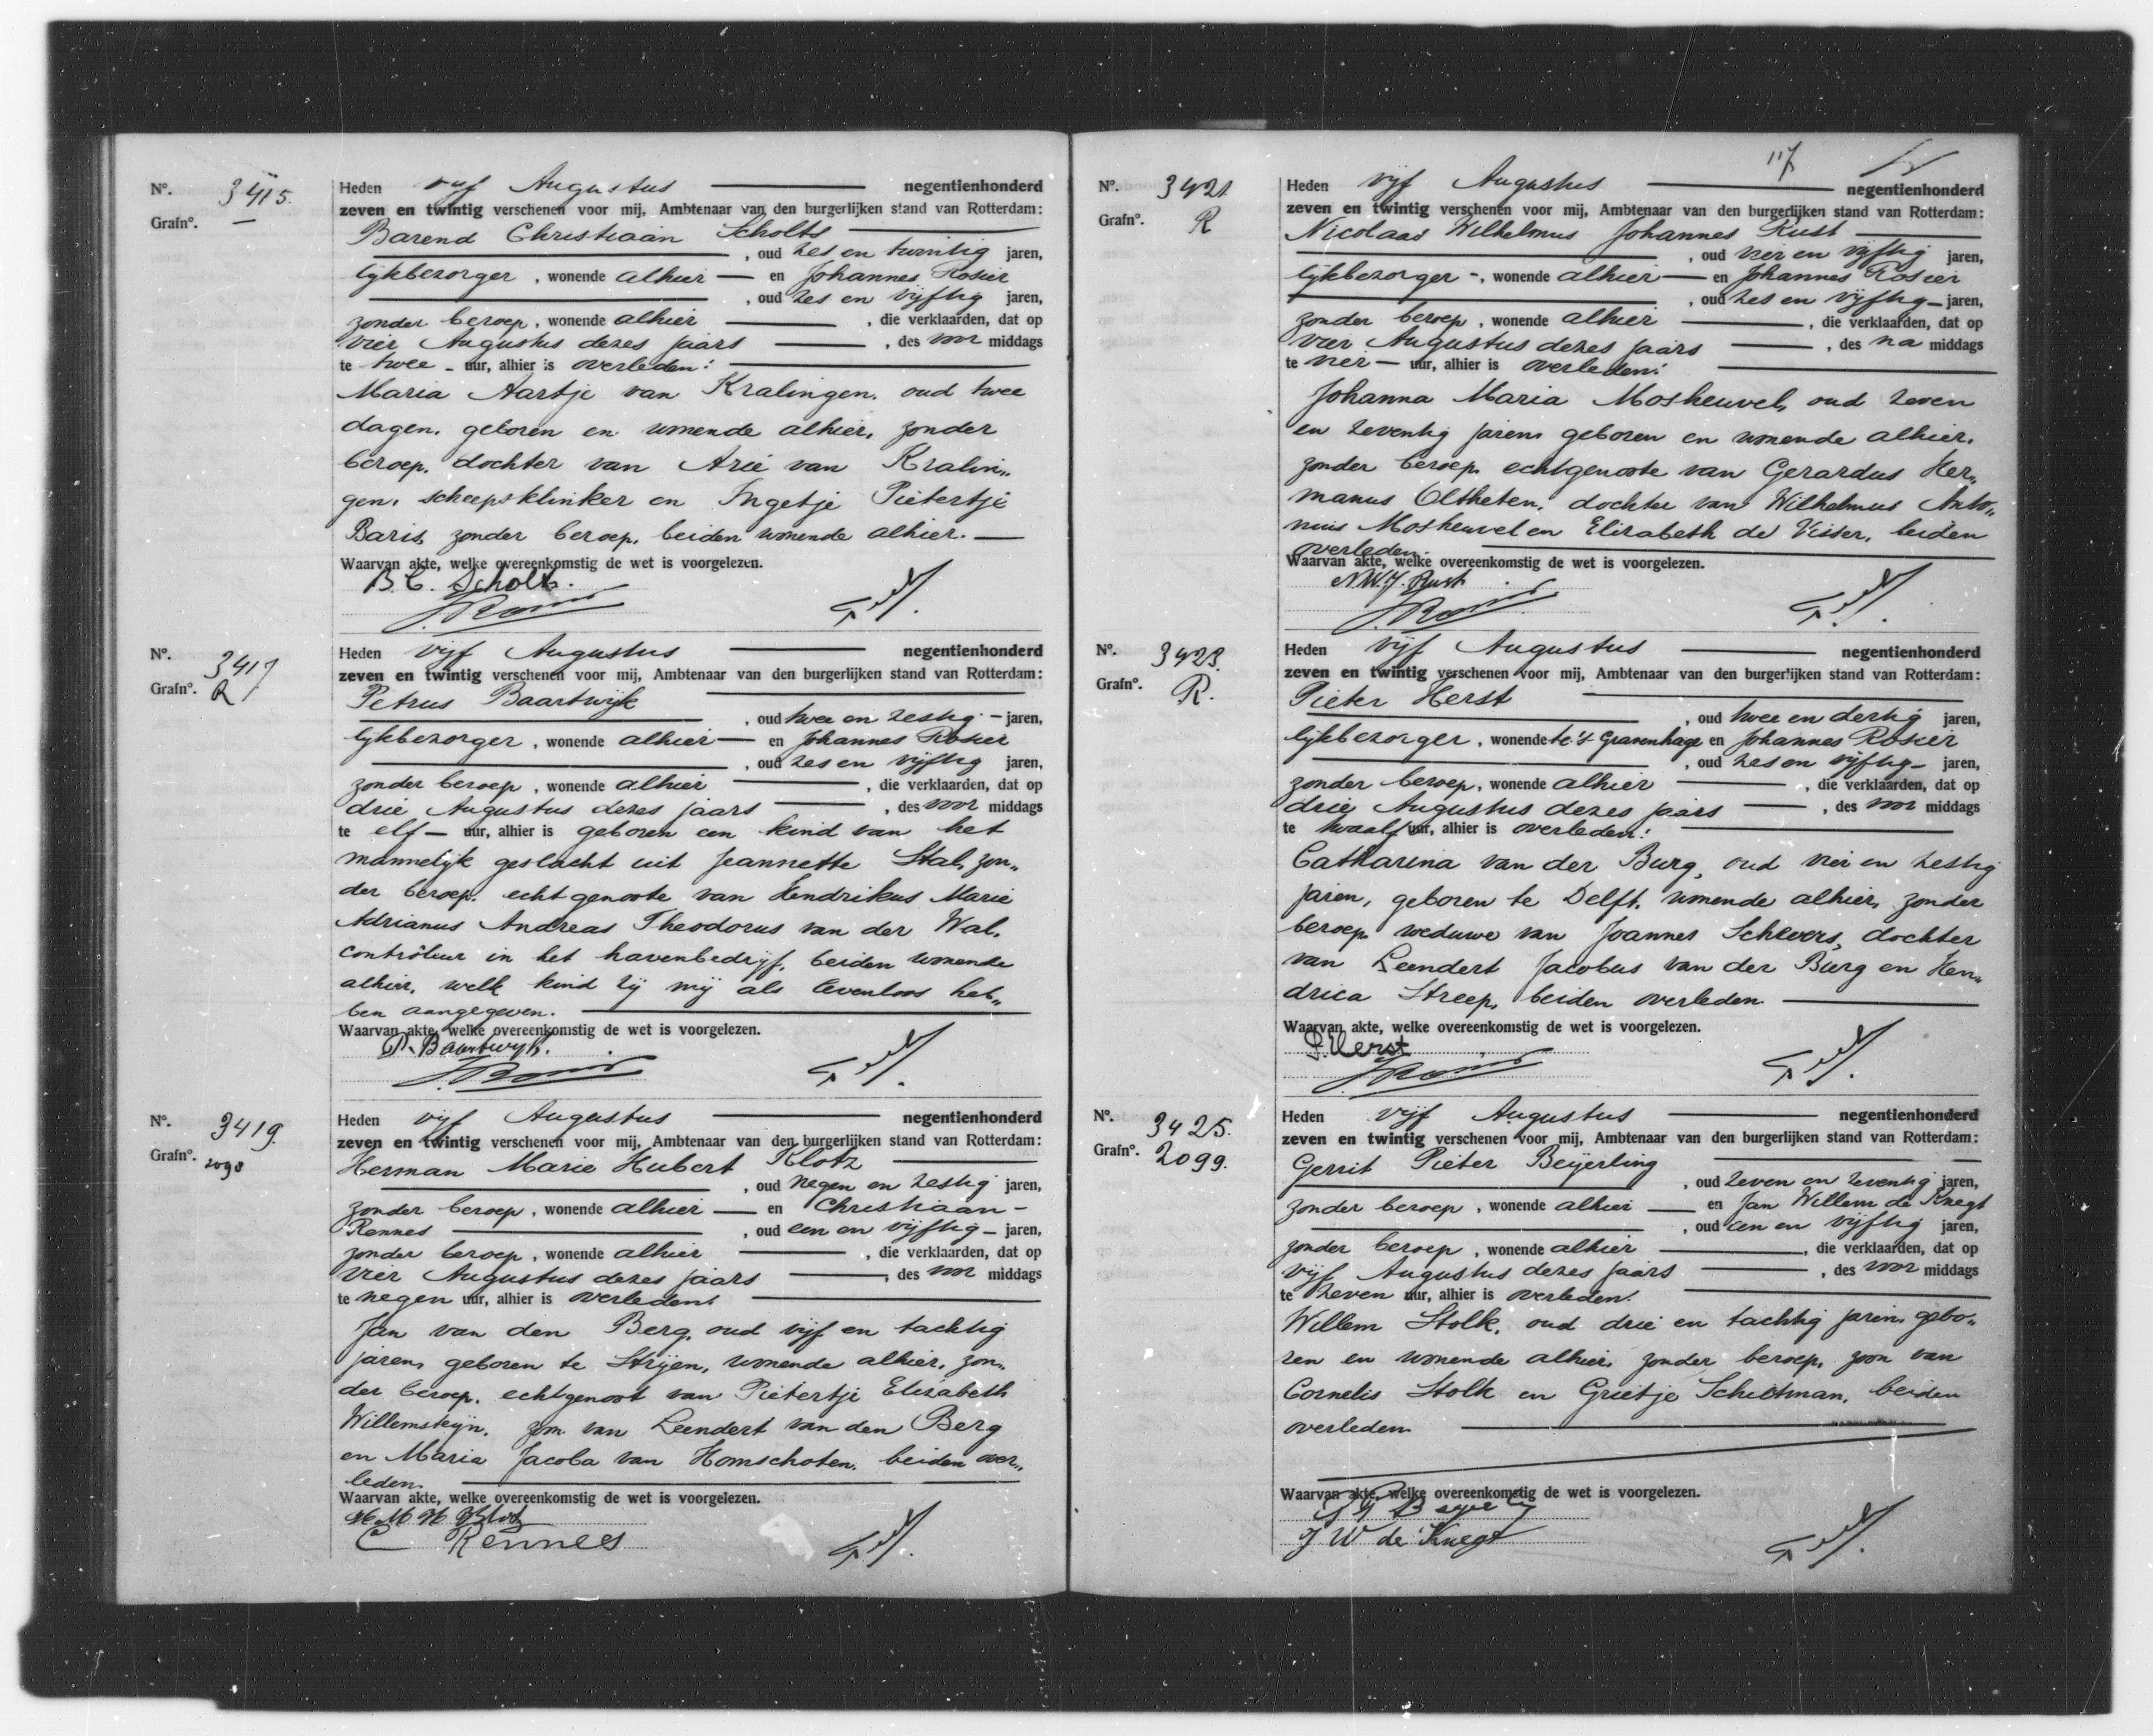 Nº. 3415.
Grafnº. —
Heden vijf Augustus negentienhonderd
zeven en twintig verschenen voor mij, Ambtenaar van den burgerlijken stand van Rotterdam:
Barend Christiaan Scholts
, oud zes en twintig jaren,
lijkbezorger, wonende alhier en Johannes Rosier
, oud zes en vijftig jaren,
zonder beroep, wonende alhier , die verklaarden, dat op
vier Augustus dezes jaars , des voor middags
te twee uur, alhier is overleden:
Maria Aartje van Kralingen, oud twee
dagen, geboren en wonende alhier, zonder
beroep, dochter van Arie van Kralin„
gen, scheepsklinker en Ingetje Pietertje
Baris, zonder beroep, beiden wonende alhier.
Waarvan akte, welke overeenkomstig de wet is voorgelezen.
B. C. Scholts.
Nº. 3417
Grafnº. R
Heden vijf Augustus negentienhonderd
zeven en twintig verschenen voor mij, Ambtenaar van den burgerlijken stand van Rotterdam:
Petrus Baartwijk
, oud twee en zestig jaren,
lijkbezorger, wonende alhier en Johannes Rosier
, oud zes en vijftig jaren,
zonder beroep, wonende alhier , die verklaarden, dat op
drie Augustus dezes jaars , des voor middags
te elf uur, alhier is geboren een kind van het
mannelijk geslacht uit Jeannette Stal, zon„
der beroep, echtgenoote van Hendrikus Marie
Adrianus Andreas Theodorus van der Wal,
contrôleur in het havenbedrijf, beiden wonende
alhier, welk kind zij mij als levenloos heb„
ben aangegeven.
Waarvan akte, welke overeenkomstig de wet is voorgelezen.
P. Baartwijk.
Nº. 3419.
Grafnº. 2098
Heden vijf Augustus negentienhonderd
zeven en twintig verschenen voor mij, Ambtenaar van den burgerlijken stand van Rotterdam:
Herman Marie Hubert Klotz
, oud negen en zestig jaren,
zonder beroep, wonende alhier en Christiaan
Rennes , oud een en vijftig jaren,
zonder beroep, wonende alhier , die verklaarden, dat op
vier Augustus dezes jaars , des voor middags
te negen uur, alhier is overleden:
Jan van den Berg, oud vijf en tachtig
jaren, geboren te Strijen, wonende alhier, zon„
der beroep, echtgenoot van Pietertje Elizabeth
Willemsteijn, zoon van Leendert van den Berg
en Maria Jacoba van Homschoten, beiden over„
leden.
Waarvan akte, welke overeenkomstig de wet is voorgelezen.
H M H Klotz
C Rennes
117
Nº. 3421
Grafnº. R
Heden vijf Augustus negentienhonderd
zeven en twintig verschenen voor mij, Ambtenaar van den burgerlijken stand van Rotterdam:
Nicolaas Wilhelmus Johannes Rust
, oud vier en vijftig jaren,
lijkbezorger, wonende alhier en Johannes Rosier
, oud zes en vijftig jaren,
zonder beroep, wonende alhier , die verklaarden, dat op
vier Augustus dezes jaars , des na middags
te vier uur, alhier is overleden:
Johanna Maria Mosheuvel, oud zeven
en zeventig jaren, geboren en wonende alhier,
zonder beroep, echtgenoote van Gerardus Her„
manus Oltheten, dochter van Wilhelmus Anto„
nius Mosheuvel en Elizabeth de Visser, beiden
overleden.
Waarvan akte, welke overeenkomstig de wet is voorgelezen.
N.W.J. Rust
Nº. 3423.
Grafnº. R.
Heden vijf Augustus negentienhonderd
zeven en twintig verschenen voor mij, Ambtenaar van den burgerlijken stand van Rotterdam:
Pieter Herst
, oud twee en dertig jaren,
lijkbezorger, wonende te 's Gravenhage en Johannes Rosier
, oud zes en vijftig jaren,
zonder beroep, wonende alhier , die verklaarden, dat op
drie Augustus dezes jaars , des voor middags
te twaalf uur, alhier is overleden:
Catharina van der Burg, oud vier en zestig
jaren, geboren te Delft, wonende alhier, zonder
beroep, weduwe van Joannes Schevers, dochter
van Leendert Jacobus van der Burg en Hen„
drica Streep, beiden overleden.
Waarvan akte, welke overeenkomstig de wet is voorgelezen.
P. Herst
Nº. 3425.
Grafnº. 2099.
Heden vijf Augustus negentienhonderd
zeven en twintig verschenen voor mij, Ambtenaar van den burgerlijken stand van Rotterdam:
Gerrit Pieter Beijerling
, oud zeven en zeventig jaren,
zonder beroep, wonende alhier en Jan Willem de Knegt
, oud een en vijftig jaren,
zonder beroep, wonende alhier , die verklaarden, dat op
vijf Augustus dezes jaars , des voor middags
te zeven uur, alhier is overleden:
Willem Stolk, oud drie en tachtig jaren, gebo„
ren en wonende alhier, zonder beroep, zoon van
Cornelis Stolk en Grietje Scheltman, beiden
overleden.
Waarvan akte, welke overeenkomstig de wet is voorgelezen.
J W de Knegt